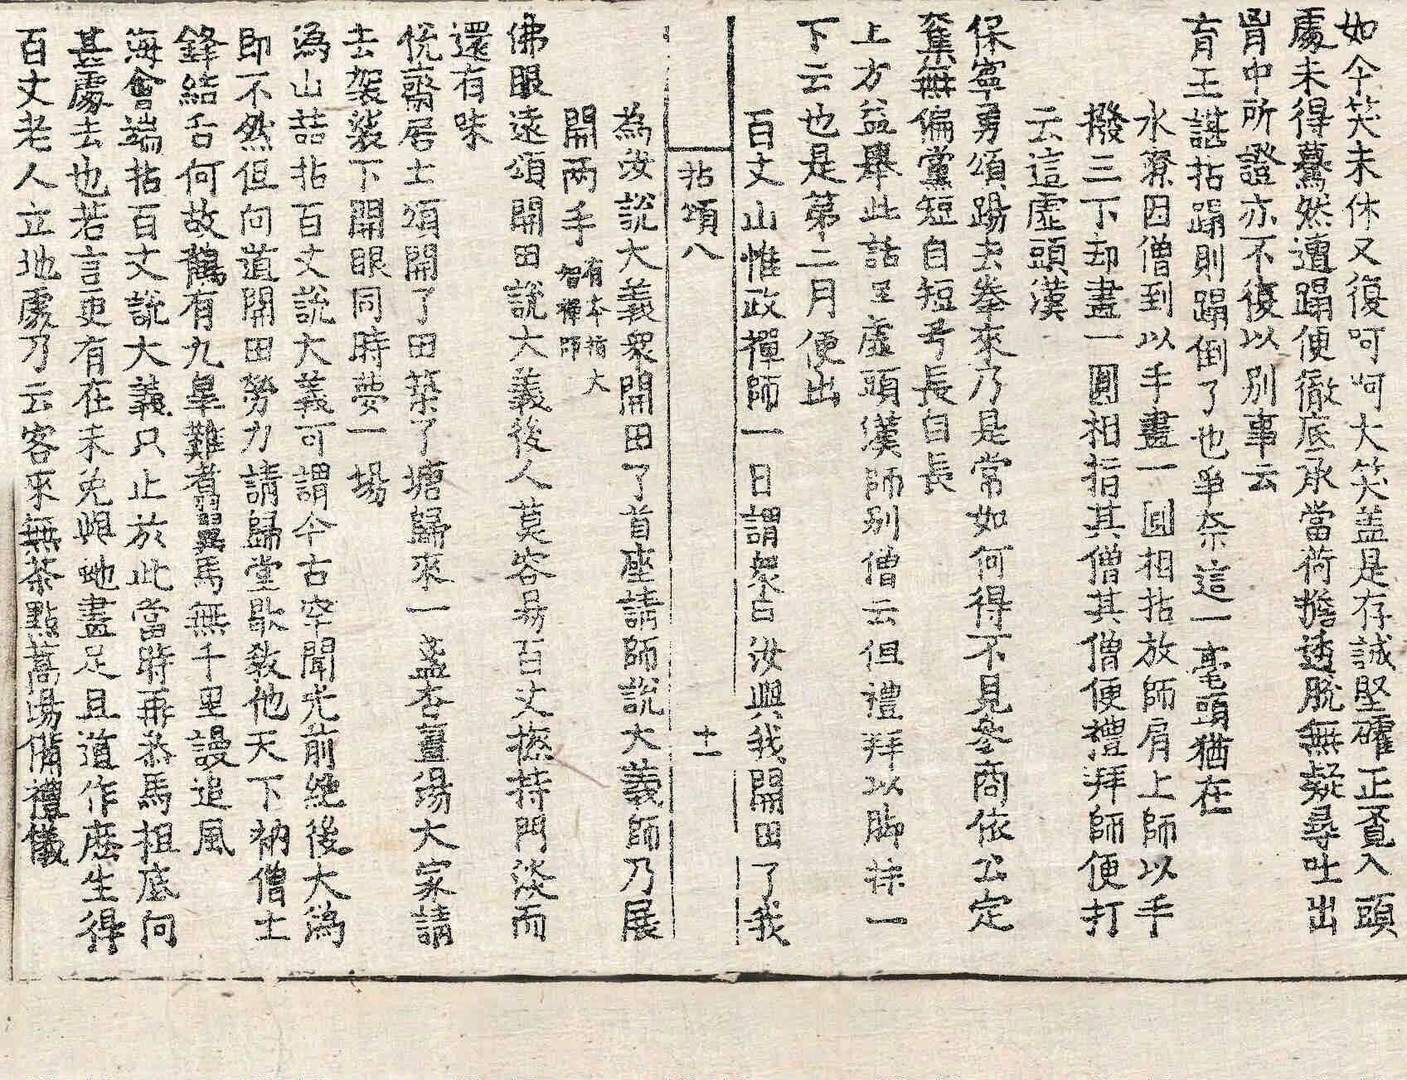 如今笑未休又復呵呵大笑盖是存誠堅確正覔入頭
處未得驀然遭蹋便徹底承當荷擔透脫無疑尋吐出
胷中所證亦不復以別事云
育王諶拈蹋則蹋倒了也爭奈這一毫頭猶在
水潦因僧到以手畫一圓相拈放師肩上師以手
撥三下却畫一圓相指其僧其僧便禮拜師便打
云這虛頭漢
保寧勇頌踢去拳來乃是常如何得不見參商依公定
奪無偏黨短自短兮長自長
上方益舉此話至虛頭漢師別僧云但禮拜以脚抹一
下云也是第二月便出
百丈山惟政禪師一日謂衆曰汝與我開田了我
拈頌八 十一
為汝說大義衆開田了首座請師說大義師乃展
開兩手 有本指大智禪師
佛眼遠頌開田說大義後人莫容易百丈揔持門淡而
還有味
恱齋居士頌開了田築了塘歸來一盞杏薑湯大家請
去袈裟下開眼同時夢一場
溈山喆拈百丈說大義可謂今古罕聞光前絶後大溈
即不然但向道開田勞力請歸堂歇敎他天下衲僧士
鋒結舌何故鶴有九臯難翥翼馬無千里謾追風
海會端拈百丈說大義只止於此當時再恭馬祖底向
甚處去也若言更有在未免與虵畫足且道作麽生得
百丈老人立地處乃云客來無茶點蒿湯備禮儀